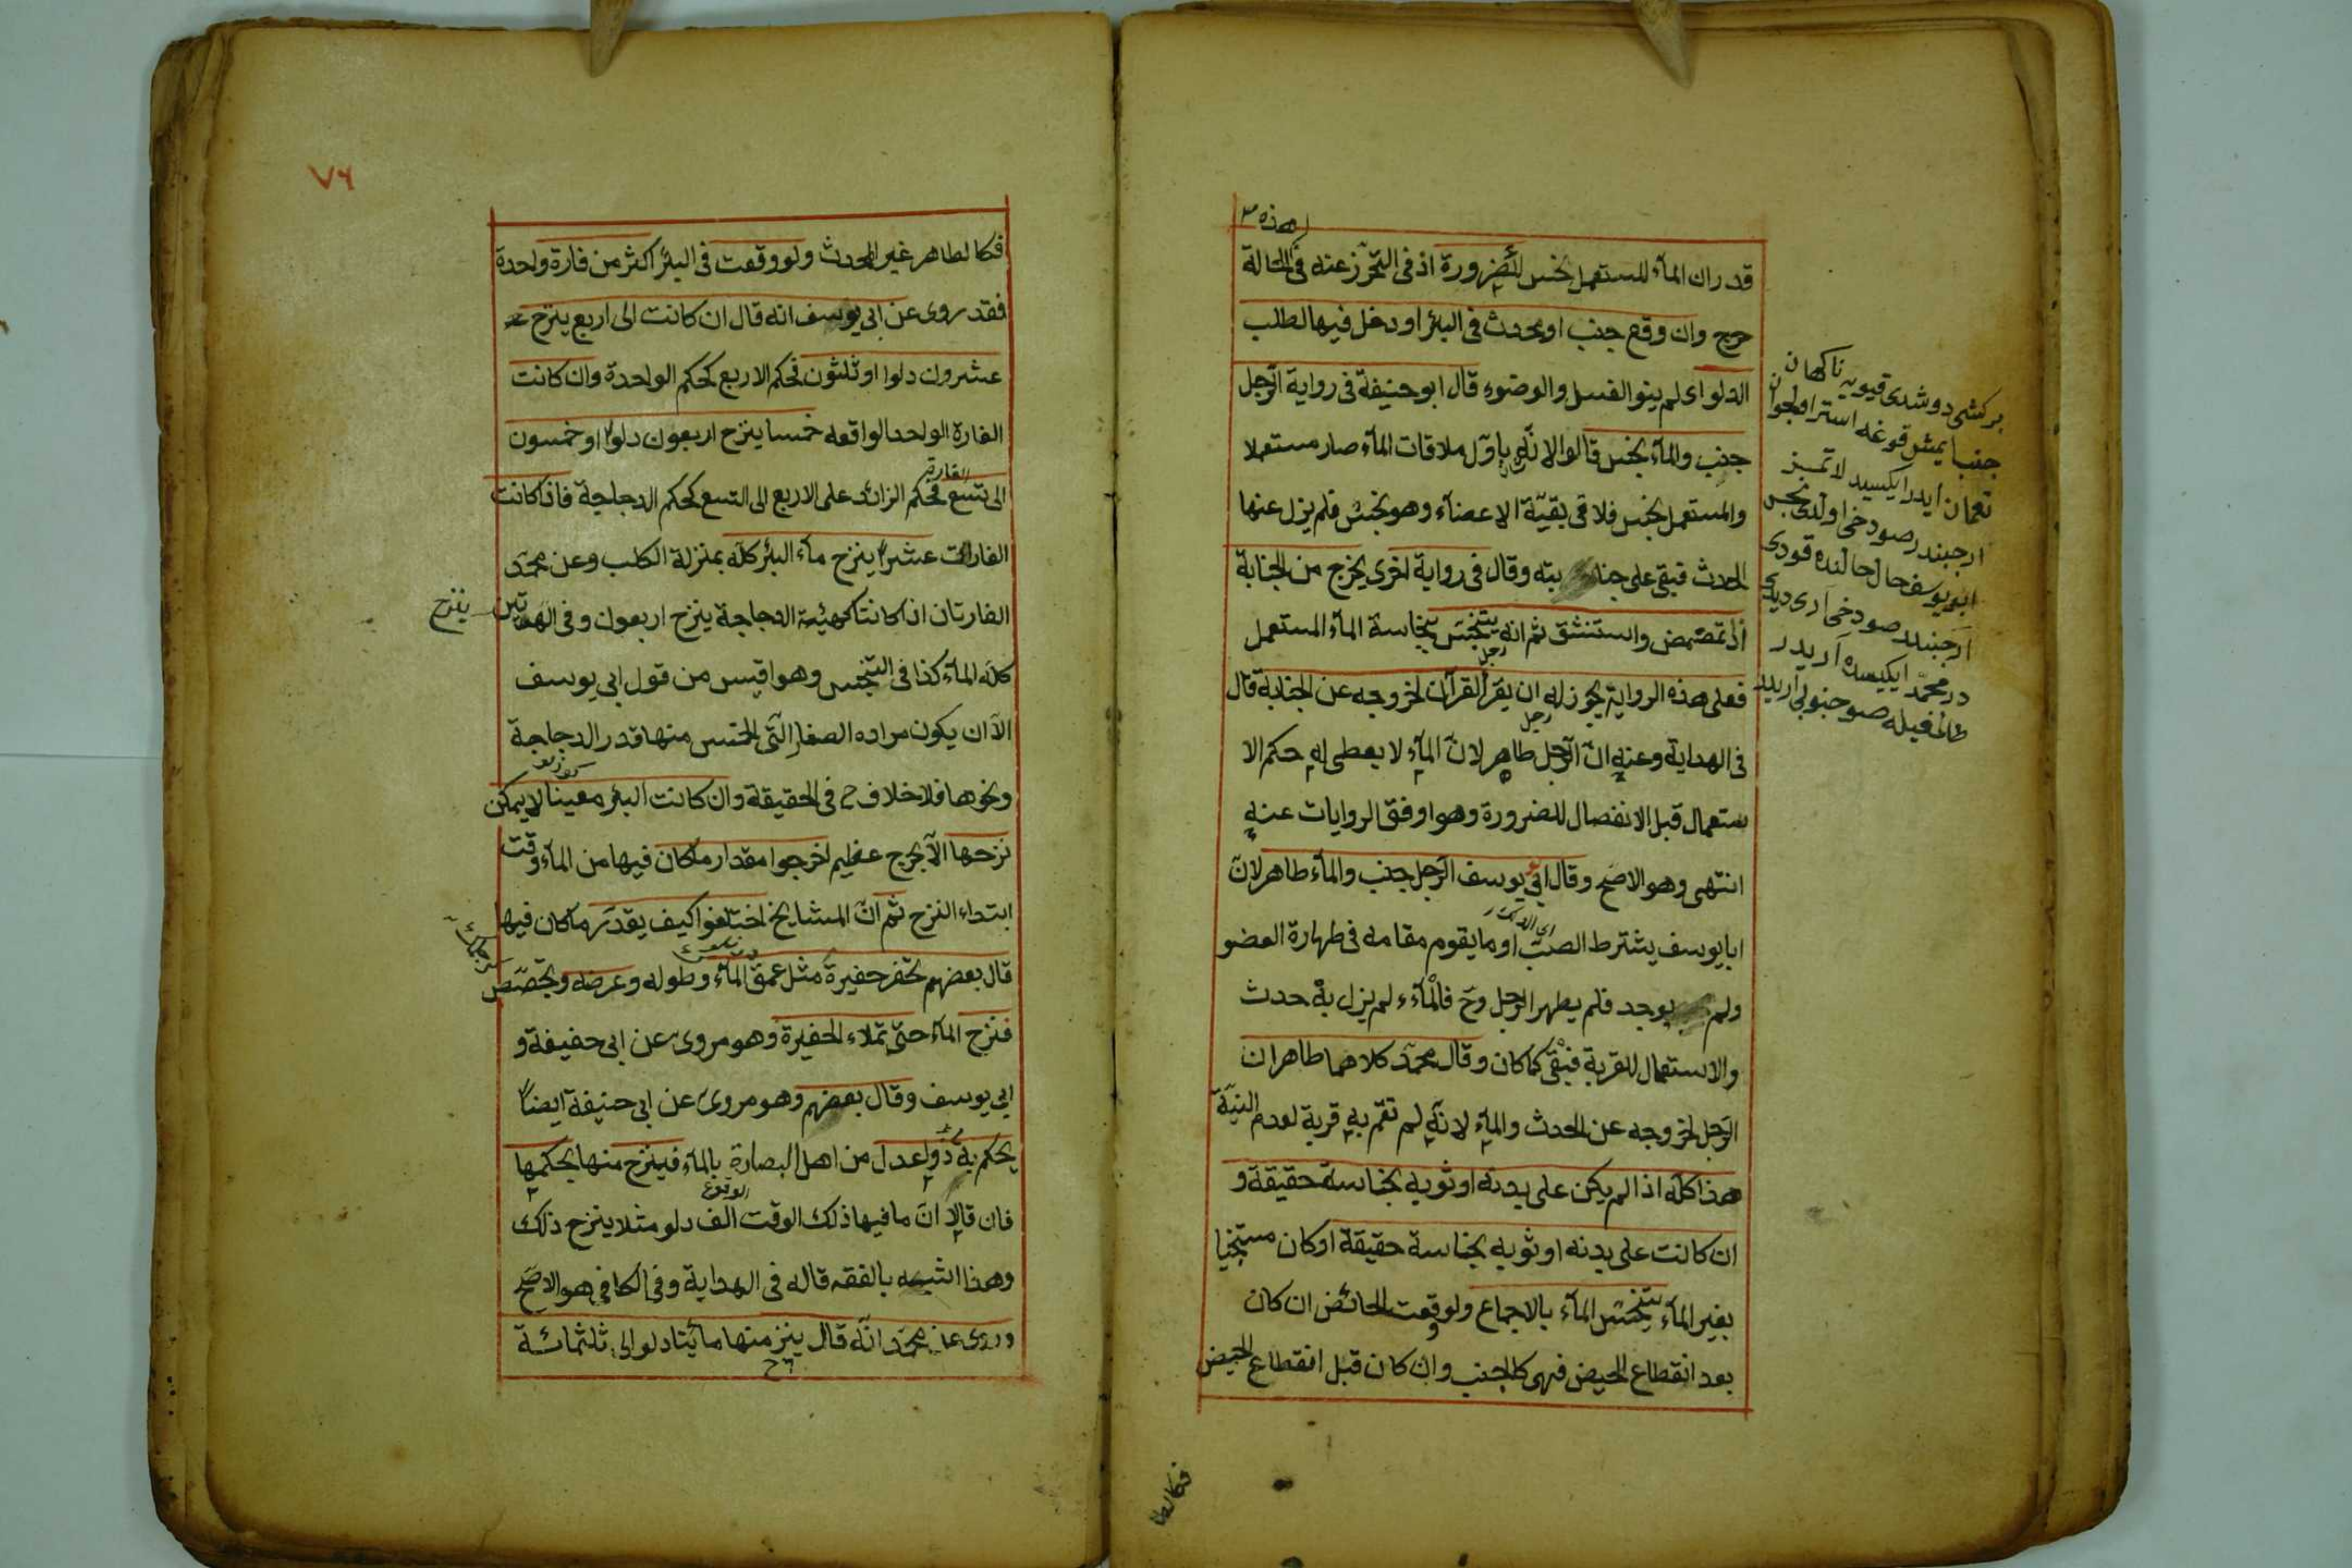 هذه ٣
قدران المآء المستعمل نجس للضرورة اذ في التحرّز عنه في الحالة
حرج وان وقع جنب او محدث في البئر او دخل فيها لطلب
الدلو اى لم ينو الغسل والوضوء قال ابو حنيفة في رواية الرّجل
جنب والمآء نجس قالوا لانّه باوّل ملاقات المآء صار مستعملا
والمستعمل نجس فلاقى بقيّة الاعضآء وهو نجس فلم يزل عنها
الحدث فبقى على جنابته وقال في رواية اخرى يخرج من الجنابة
اذا تمضمض واستنشق ثم انه يتنجّس بنجاسة المآء المستعمل
رجل
فعلى هذه الرواية يجوز له ان يقرأ القرآن لخروجه عن الجنابة قال
رجل
في الهداية وعنه انّ الرّجل طاهر لانّ المآء لا يعطى له حكم الا
ستعمال قبل الانفصال للضرورة وهو اوفق الروايات عنه
انتهى وهو الاصحّ وقال ابي يوسف الرّجل جنب والمآء طاهر لانّ
ابا يوسف يشترط الصبّ او ما يقوم مقامه في طهارة العضو
ولم يوجد فلم يطهر الرجل وح فالمآء لم يزل به حدث
والاستعمال للقربة فبقى كما كان وقال محمّد كلاهما طاهران
الرّجل لخروجه عن الحدث والمآء لانّه لم تقم به قربة لعدم النيّة
هذا كلّه اذا لم يكن على بدنه او ثوبه نجاسة حقيقة و
ان كانت على بدنه او ثوبه نجاسة حقيقة او كان مستنجيا
بغير المآء يتنجّس المآء بالاجماع ولو وقعت الحائض ان كان
بعد انقطاع الحيض فهى كالجنب وان كان قبل انقطاع الحيض
فكالطا
بر كشى دوشدى قيويه ناكهان
جنب ايمش قوغه استر اول جوان
نعمان ايدر ايكيسيد لا تميز
ار جبندر صو دخى اولدى نجس
ابو يوسف حال حالنده قودى
ار جبندر صو دخى ارى ديدى
در محمّد ايكيسده آريدر
٧٦
فكالطاهر غير المحدث ولو وقعت في البئر اكثر من فارة واحدة
فقد روى عن ابي يوسف انه قال ان كانت الى اربع ينزح
عشرون دلوا او ثلثون فحكم الاربع كحكم الواحدة وان كانت
الفارة الواحد الواقعه خمسا ينزح اربعون دلوا او خمسون
الفارة
الى تسع فحكم الزائد على الاربع الى التسع كحكم الدجاجة فاذا كانت
الفارات عشرا ينزح مآء البئر كلّه بمنزلة الكلب وعن محمّد
الفارتان اذا كانتا كهيئة الدجاجة ينزح اربعون وفي الهرّتين ينزح
كلّه المآء كذا في التجنيس وهو اقيس من قول ابي يوسف
الّا ان يكون مراده الصغار الّتى الخمس منها قدر الدجاجة
ونحوها فلا خلاف ح في الحقيقة وان كانت البئر معينا لا يمكن
نزحها الّا بحرج عظيم اخرجوا مقدار ما كان فيها من المآء وقت
ابتداء النزح ثم انّ المشايخ اختلفوا كيف يقدّر ما كان فيها
قال بعضهم تحفر حفيرة مثل عمق المآء وطوله وعرضه وتجصّص
فنزح المآء حتّى تملاء الحفيرة وهو مروى عن ابي حنيفة و
ابي يوسف وقال بعضهم وهو مروى عن ابي حنيفة ايضا
يحكم به ذوا عدل من اهل البصارة بالمآء فينزح منها بحكمها
الوقوع
فان قالا انّ ما فيها ذلك الوقت الف دلو مثلا ينزح ذلك
وهذا اشبه بالفقه قاله في الهداية وفي الكافي هو الاصحّ
وروى عن محمّد انّه قال ينزح منها مائتا دلو الى ثلثمائة